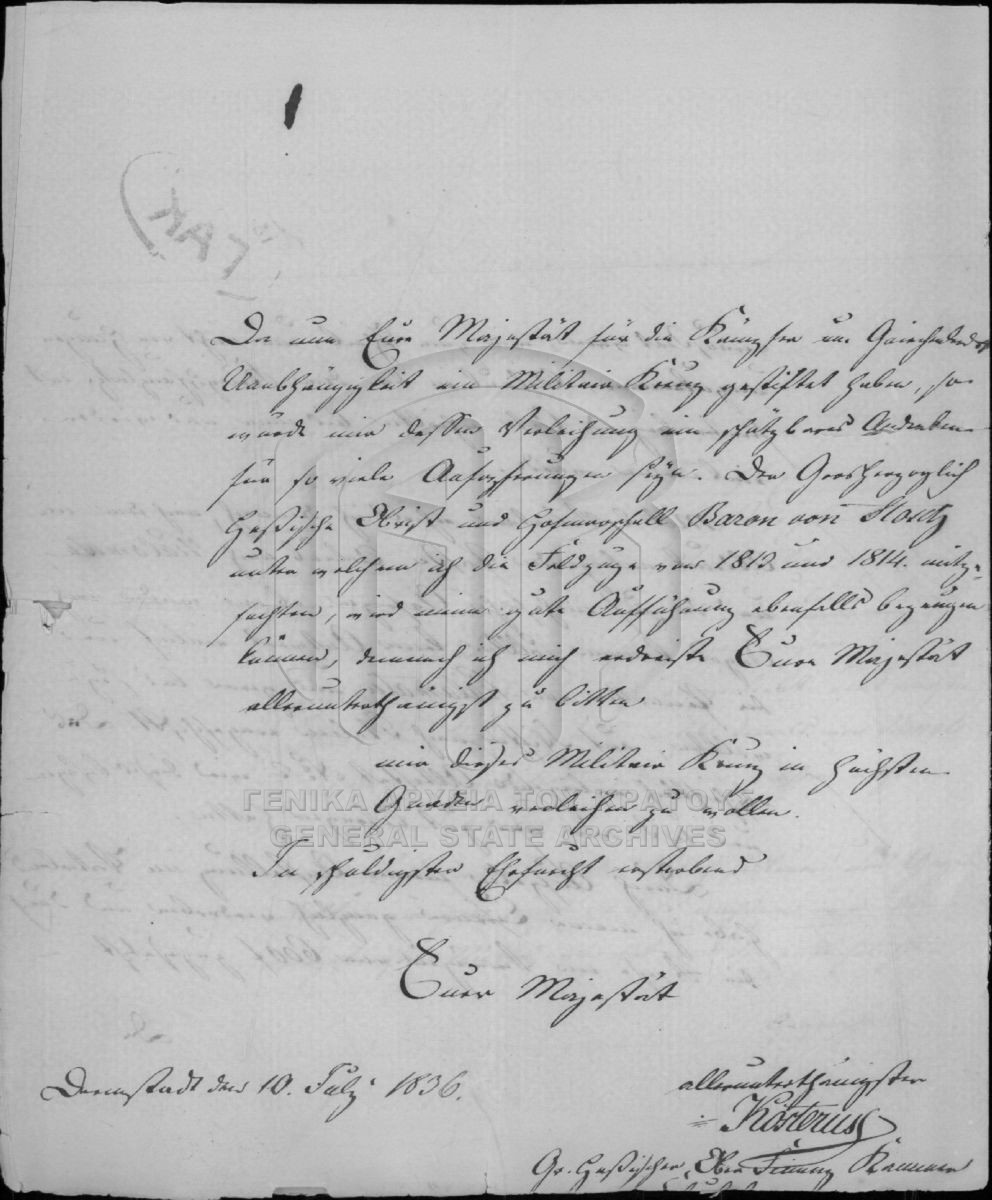 Da nun Eure Majestät für die Kämpfer um Griechenlands
Unabhängigkeit ein Militair Kreuz gestiftet haben, so
würde mir dessen Verleihung ein schätzbares Andenken
für so viele Aufopferungen seyn. Der Grosherzoglich
Heßische Obrist und Hofmarschall Baron von Stosch
unter welchem ich die Feldzüge von 1813 und 1814. mitge-
fochten, wird meine gute Aufführung ebenfalls bezeugen
können, demnach ich mich erdreiste Eure Majestät
allerunterthänigst zu bitten
mir dieses Militair Kreuz in höchsten
Gnaden verleihen zu wollen.
ΓΕΝΙΚΑ ΑΡΧΕΙΑ ΤΟΥ ΚΡΑΤΟΥΣ
GENERAL STATE ARCHIVES
In schuldigster Ehrfurcht ersterbend
Euer Majestät
Darmstadt den 10. July 1836.
allerunterthänigster
Kösterus
Gr. Heßischer Ober Finanz Kammer